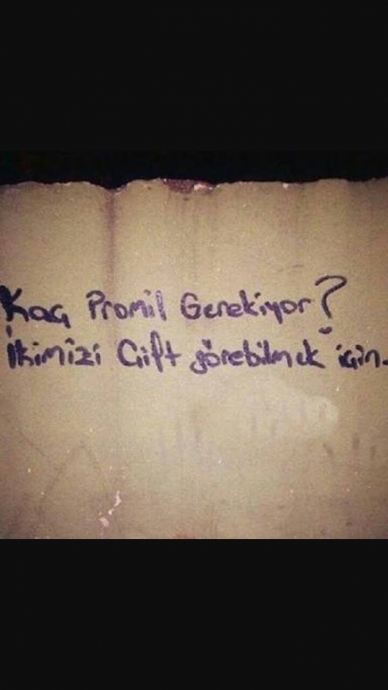 Kaç Promil Gerekiyor?
İkimizi Çift görebilmek için.